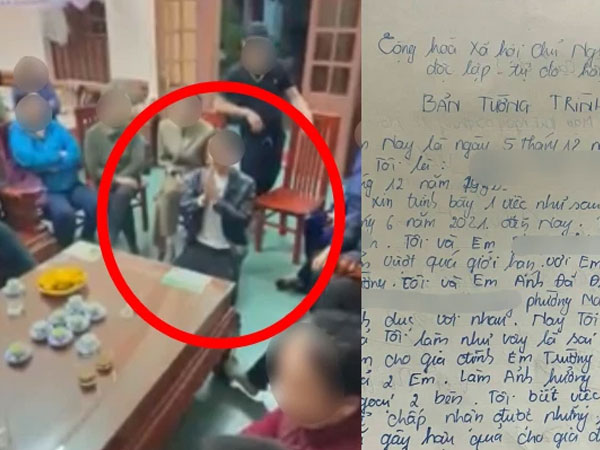 Cộng hoà Xã hội chủ Ng
độc lập - tự do - h
BẢN TƯỜNG TRÌNH
Nay là ngày 5 tháng 12 n
Tôi là :
g 12 năm
xin trình bày 1 việc như sau
6 năm 2021. đến nay.
Tôi và Em
vượt quá giới hạn với Em
Tôi và Em Anh Đã Đ
phường Na
dục với nhau. Nay Tôi
Tôi làm như vậy là sai
cho gia đình Em Trường
2 Em. Làm Ảnh hưởng
ngoại 2 bên. Tôi biết việc
chấp nhận được nhưng
gây hậu quả cho gia đ